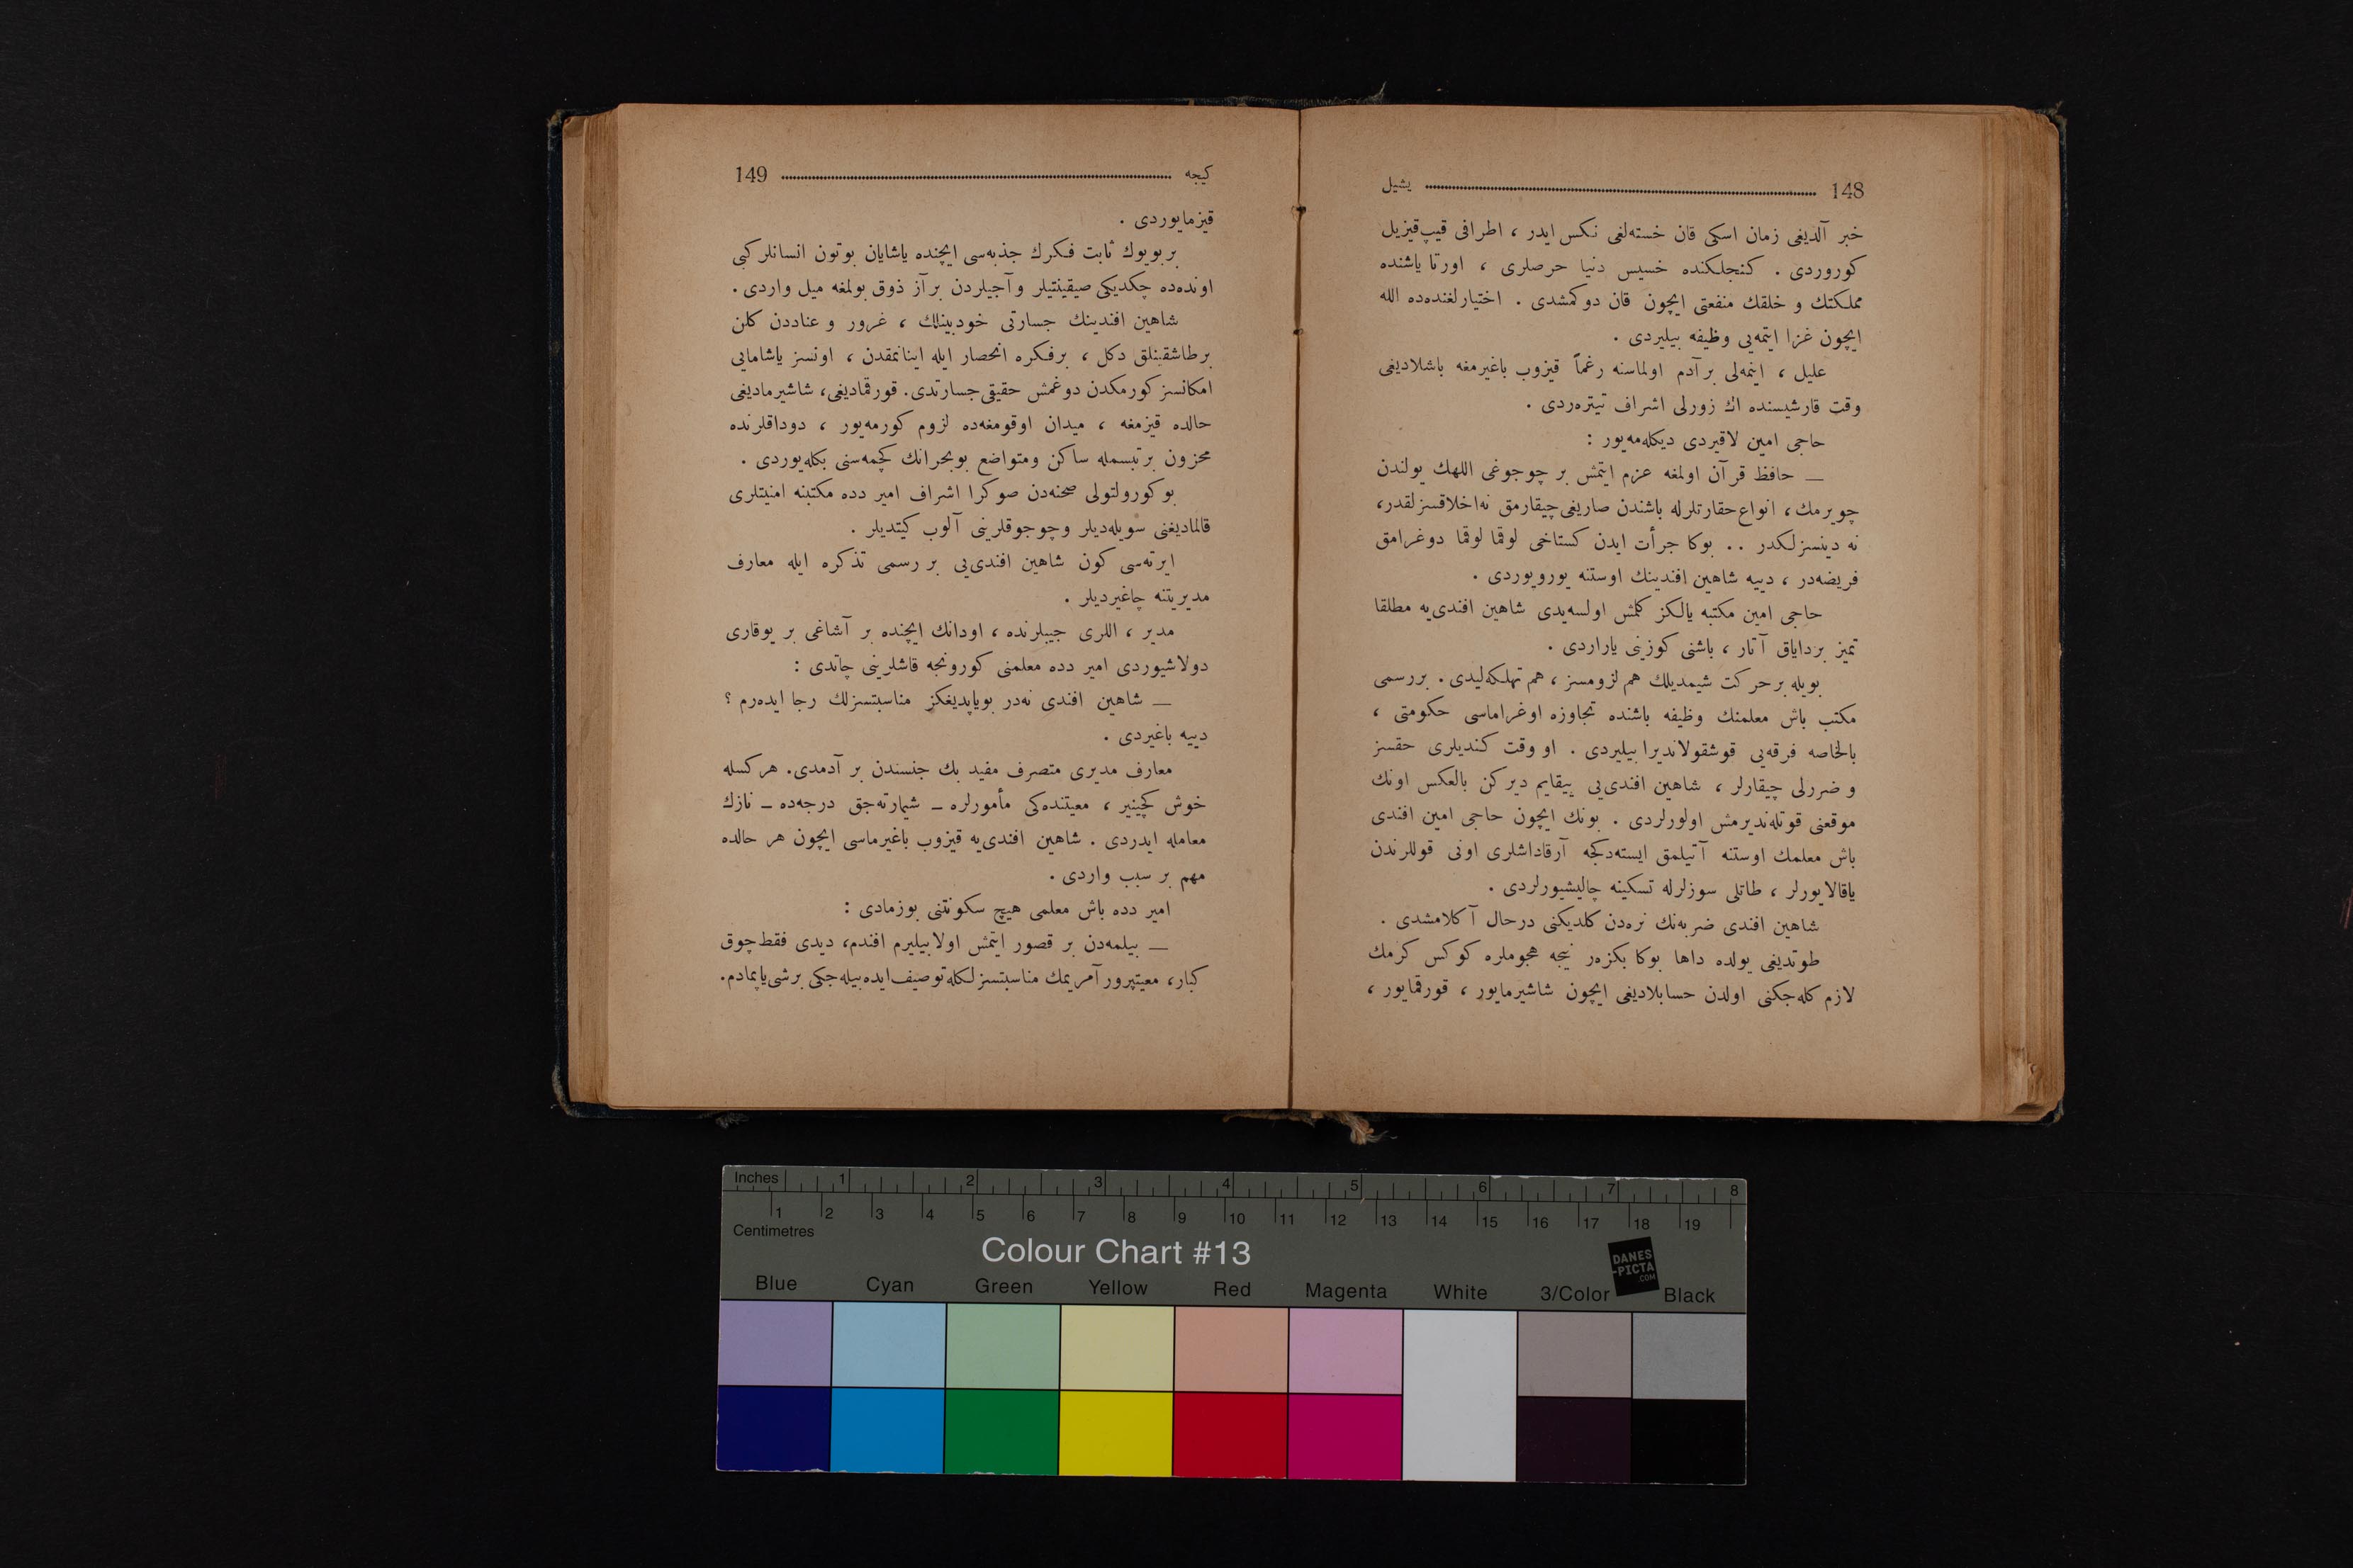 148 یشیل
خبر آلدیغی زمان اسكی قان خسته‌لغی نكس ایدر ، اطرافی قیپ‌قیزیل
كوروردی . كنجلكنده خسیس دنیا حرصلری ، اورتا یاشنده
مملكتك و خلقك منفعتی ایچون قان دوكمشدی . اختیارلغنده‌ده الله
ایچون غزا ایتمه‌یی وظیفه بیلیردی .
علیل ، اینمه‌لی برآدم اولماسنه رغماً قیزوب باغیرمغه باشلادیغی
وقت قارشیسنده اك زورلی اشراف تیتره‌ردی .
حاجی امین لاقیردی دیكله‌مه‌یور :
— حافظ قرآن اولمغه عزم ایتمش بر چوجوغی اللهك یولندن
چویرمك ، انواع حقارتلرله باشندن صاریغی چیقارمق نه‌اخلاقسزلقدر،
نه دینسزلكدر .. بوكا جرأت ایدن كستاخی لوقما لوقما دوغرامق
فریضه‌در ، دییه شاهین افندینك اوستنه یورویوردی .
حاجی امین مكتبه یالكز كلمش اولسه‌یدی شاهین افندی‌یه مطلقا
تمیز برداياق آتار ، باشنی كوزینی یاراردی .
بویله برحركت شیمدیلك هم لزومسز ، هم تهلكه‌لیدی . بررسمی
مكتب باش معلمنك وظیفه باشنده تجاوزه اوغراماسی حكومتی ،
بالخاصه فرقه‌یی قوشقولاندیرا بیلیردی . او وقت كندیلری حقسز
و ضررلی چیقارلر ، شاهین افندی‌یی ییقایم دیركن بالعكس اونك
موقعنی قوتله‌ندیرمش اولورلردی . بونك ایچون حاجی امین افندی
باش معلمك اوستنه آتیلمق ایسته‌دكجه آرقاداشلری اونی قوللرندن
یاقالایورلر ، طاتلی سوزلرله تسكینه چالیشیورلردی .
شاهین افندی ضربه‌نك نره‌دن كلدیكنی درحال آكلامشدی .
طوتدیغی یولده داها بوكا بكزه‌ر نیجه هجوملره كوكس كرمك
لازم كله‌جكنی اولدن حسابلادیغی ایچون شاشیرمایور ، قورقمایور ،
كیجه 149
قیزمایوردی .
بربویوك ثابت فكرك جذبه‌سی ایچنده یاشایان بوتون انسانلركبی
اونده‌ده چكدیكی صیقینتیلر وآجیلردن برآز ذوق بولمغه میل واردی .
شاهین افندینك جسارتی خودبینلك ، غرور و عناددن كلن
برطاشقینلق دكل ، برفكره انحصار ایله اینانمقدن ، اونسز یاشامایی
امكانسز كورمكدن دوغمش حقیقی جسارتدی. قورقمادیغی، شاشیرمادیغی
حالده قیزمغه ، میدان اوقومغه‌ده لزوم كورمه‌یور ، دوداقلرنده
محزون برتبسمله ساكن ومتواضع بوبحرانك كچمه‌سنی بكله‌یوردی .
بوكورولتولی صحنه‌دن صوكرا اشراف امیر دده مكتبنه امنیتلری
قالمادیغنی سویله‌دیلر وچوجوقلرینی آلوب كیتدیلر .
ایرته‌سی كون شاهین افندی‌یی بر رسمی تذكره ایله معارف
مدیریتنه چاغیردیلر .
مدیر ، اللری جیبلرنده ، اودانك ایچنده بر آشاغی بر یوقاری
دولاشیوردی امیر دده معلمنی كورونجه قاشلرینی چاتدی :
— شاهین افندی نه‌در بویاپدیغكز مناسبتسزلك رجا ایده‌رم ؟
دییه باغیردی .
معارف مدیری متصرف مفید بك جنسندن بر آدمدی. هركسله
خوش كچینیر ، معیتنده‌كی مأمورلره — شیمارته‌جق درجه‌ده — نازك
معامله ایدردی . شاهین افندی‌یه قیزوب باغیرماسی ایچون هر حالده
مهم بر سبب واردی .
امیر دده باش معلمی هیچ سكونتنی بوزمادی :
— بیلمه‌دن بر قصور ایتمش اولابیلیرم افندم، دیدی فقط چوق
كبار، معیتپرور آمریمك مناسبتسزلكله توصیف ایده‌بیله‌جكی برشی یاپمادم.
Inches 1 2 3 4 5 6 7 8
1 2 3 4 5 6 7 8 9 10 11 12 13 14 15 16 17 18 19
Centimetres
Colour Chart #13
DANES
-PICTA
.COM
Blue Cyan Green Yellow Red Magenta White 3/Color Black